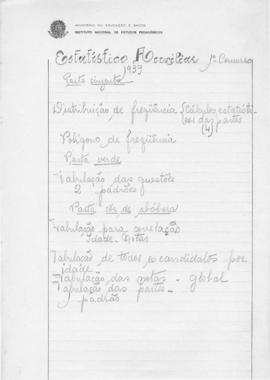 MINISTÉRIO DA EDUCAÇÃO E SAÚDE
INSTITUTO NACIONAL DE ESTUDOS PEDAGÓGICOS
Estatístico Auxiliar 1º Concurso
1939
Pasta cinzenta
Distribuição de freqüência
Cálculos estatísti-
cos das partes
(4)
Polígono de freqüência
Pasta verde
Tabulação das questões
2 padrões
Pasta côr de abóbora
Tabulação para correlação
Idade - Notas
Tabulação de todos os candidatos por
idade
Tabulação das notas - global
Tabulação das partes -
padrão